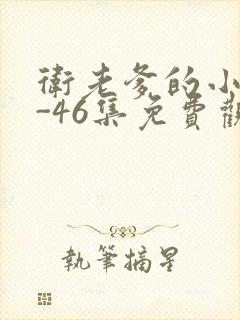 衛老爹的小
-46集免費觀
執筆摘星